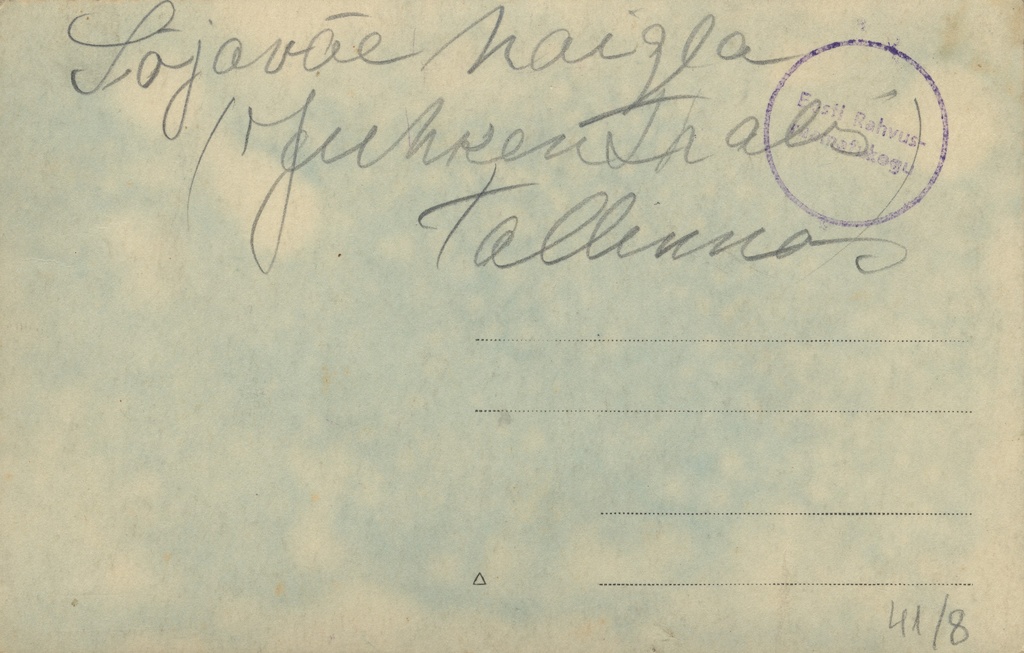 Sõjaväe haigla
(Juhkentnals)
Tallinnas
Eesti Rahvus-
41/8